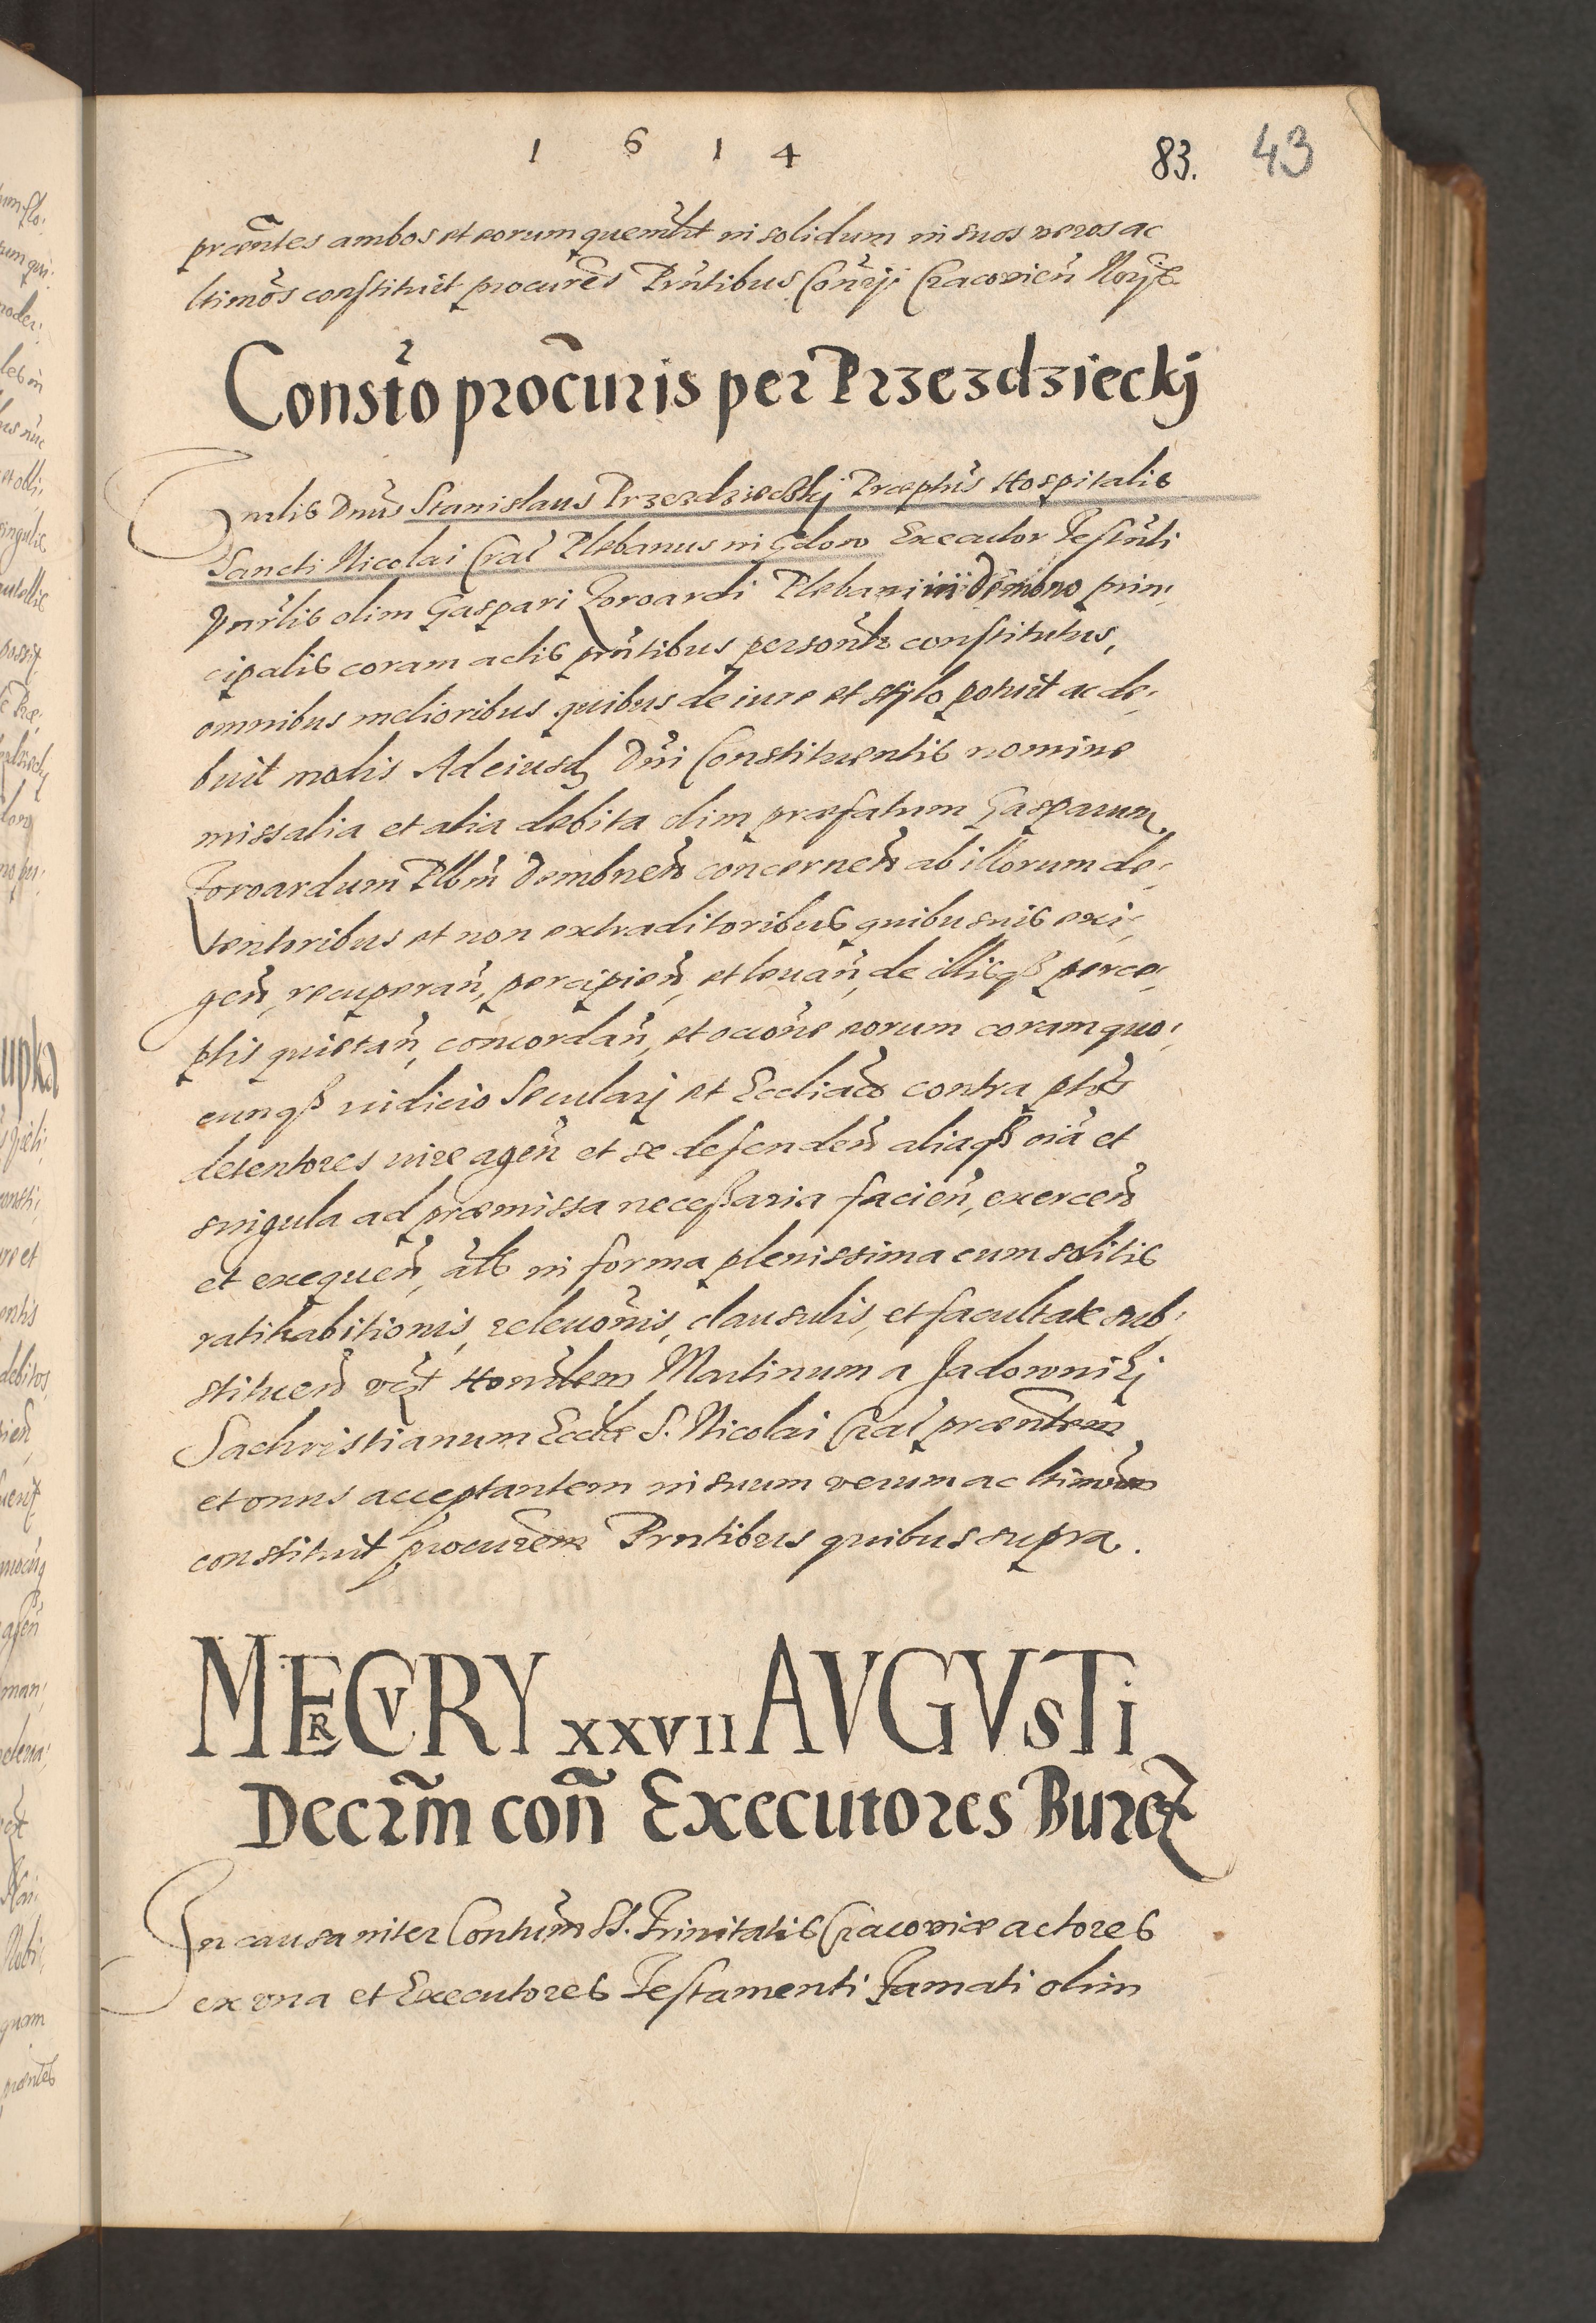 1 6 1 4
83. 43
præntes ambos et eorum quemlt in solidum in suos veros ac
ltimos constituit procures Prntibus Consrÿ Cracovien Norÿs
Consto procuris per Przezdzieckÿ
Vnrlis Dnus Stanislaus Przezdzieckÿ Præptus Hospitalis
Sancti Nicolai Cral Plebanus in Gdow Executor Testnti
Vnrlis olim Gaspari Zorardi Plebani in Dembno prin:
cipalis coram actis prntibus personlr constitutus,
omnibus melioribus quibus de iure et stÿlo potuit ac de:
buit modis Ad eiusdem Dni Constituentis nomine
missalia et alia debita olim præfatum Gasparum
Zoroardum Plbm Dembnen concernen ab illorum de:
tentoribus et non extraditoribus quibusuis exi:
gen, recuperan, percipien, et leuan, de illisqß perce:
ptis quietan, concordan, et occone eorum coram quo:
cunqß iudicio Secularÿ et Eccliaco contra ptos
detentores iure agen et se defenden aliaqß oia et
singula ad præmissa neceßaria facien, exercen
et exequen, als in forma plenissima cum solitis
ratihabitionis, releuonis, clausulis, et facultate sub:
stituen vczt Honrlem Martinum a Jadownikj
Sachristianum Eccliæ S. Nicolai Cral præntem
et onus acceptantem in suum verum ac ltimum
constituit procurem Prntibus quibus supra.
MERCVRY XXVII AVGVSTi
Decrm con Executores Burcz
In causa inter Contum SS. Trinitatis Cracoviæ actores
ex vna et Executores Testamenti Famati olim